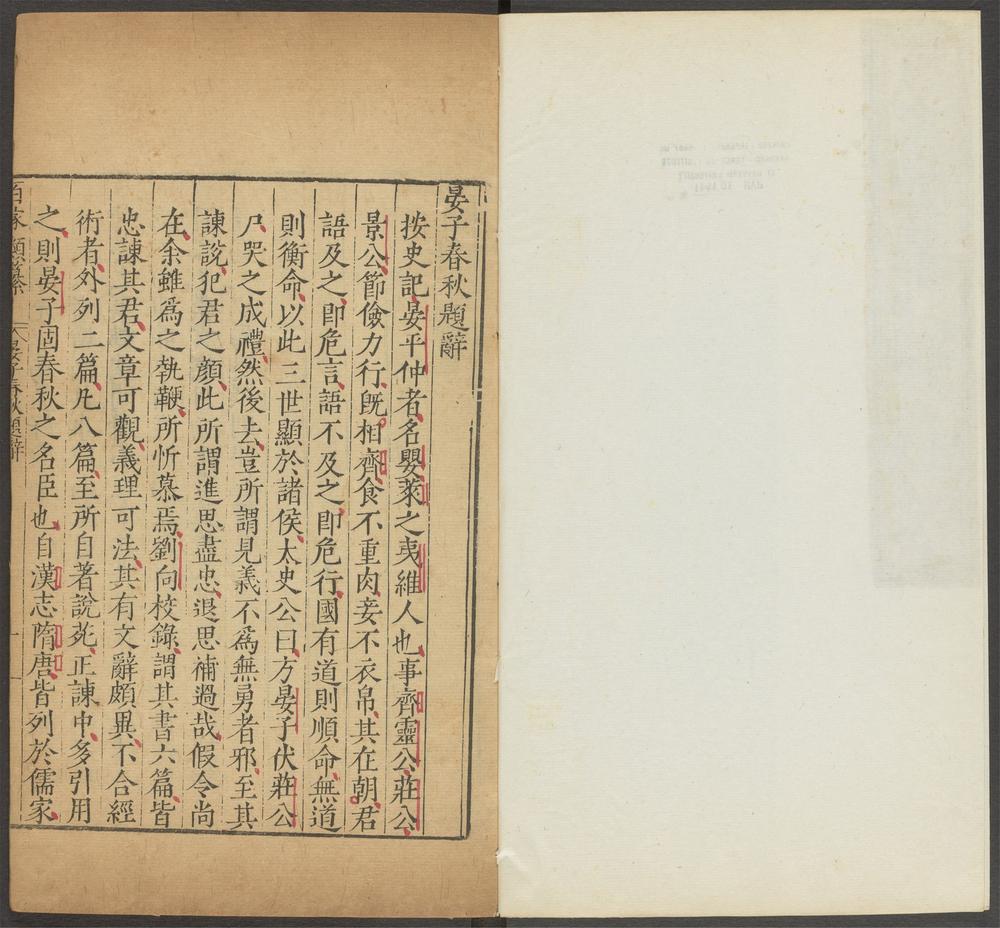 晏子春秋題辭
按史記晏平仲者名嬰萊之夷維人也事齊靈公莊公
景公節儉力行既相齊食不重肉妾不衣帛其在朝君
語及之即危言語不及之即危行國有道則順命無道
則衡命以此三世顯於諸侯太史公曰方晏子伏莊公
尸哭之成禮然後去豈所謂見義不爲無勇者邪至其
諫說犯君之顏此所謂進思盡忠退思補過哉假令尚
在余雖爲之執鞭所忻慕焉劉向校錄謂其書六篇皆
忠諫其君文章可觀義理可法其有文辭頗異不合經
術者外列二篇凡八篇至所自著說苑正諫中多引用
之則晏子固春秋之名臣也自漢志隋唐皆列於儒家
晏子春秋題辭
一